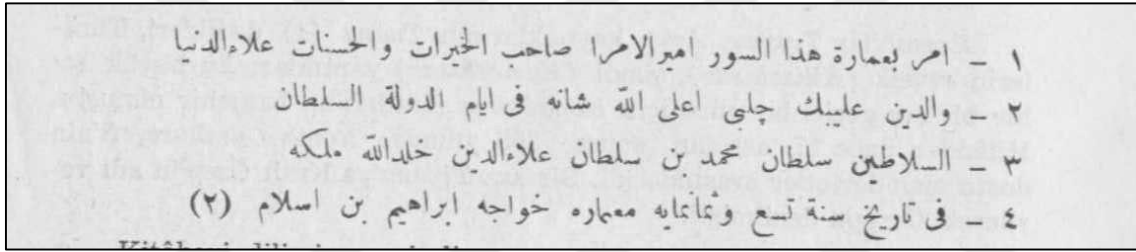 ١ – امر بعمارة هذا السور امير الامرا صاحب الخيرات والحسنات علاءالدنيا
٢ – والدين عليبك چلبى اعلى الله شانه فى ايام الدولة السلطان
٣ – السلاطين سلطان محمد بن سلطان علاءالدين خلدالله ملكه
٤ – فى تاريخ سنة تسع وثمانمايه معماره خواجه ابراهيم بن اسلام (٢)